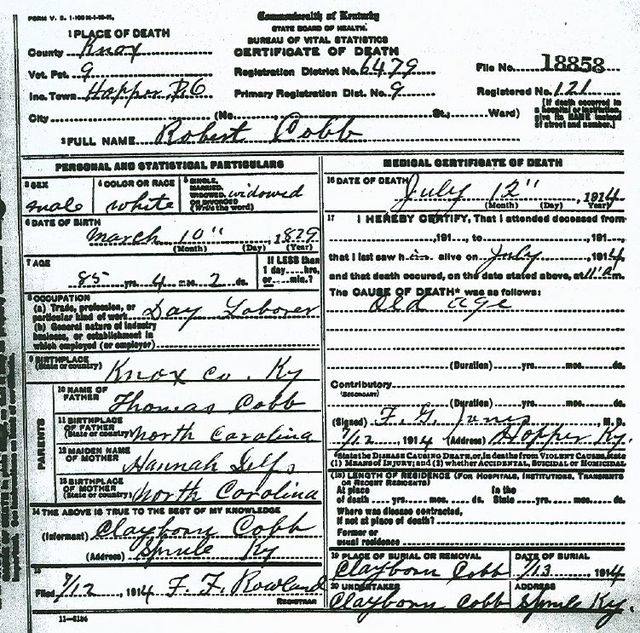 FORM V. S. 1-
Commonwealth of Kentucky
STATE BOARD OF HEALTH
BUREAU OF VITAL STATISTICS
CERTIFICATE OF DEATH
1 PLACE OF DEATH
County Knox
Vot. Pct. 9
Registration District No. 6479
File No. 18858
Inc. Town Hopper P.O
Primary Registration Dist. No. 9
Registered No. 121
City (No. St.; Ward)
[If death occurred in a hospital or institution, give its NAME instead of street and number.]
2 FULL NAME Robert Cobb
PERSONAL AND STATISTICAL PARTICULARS
3 SEX male
4 COLOR OR RACE white
5 SINGLE, MARRIED, WIDOWED, OR DIVORCED (Write the word) widowed
6 DATE OF BIRTH
March 10" 1829
(Month) (Day) (Year)
7 AGE
85 yrs. 4 mos. 2 ds.
If LESS than 1 day....hrs. or....min.?
8 OCCUPATION
(a) Trade, profession, or particular kind of work Day Laborer
(b) General nature of industry business, or establishment in which employed (or employer)
9 BIRTHPLACE
(State or country) Knox Co. Ky
PARENTS
10 NAME OF FATHER Thomas Cobb
11 BIRTHPLACE OF FATHER (State or country) North Carolina
12 MAIDEN NAME OF MOTHER Hannah
13 BIRTHPLACE OF MOTHER (State or country) North Carolina
14 THE ABOVE IS TRUE TO THE BEST OF MY KNOWLEDGE
(Informant) Clayborn Cobb
(Address) Sprule Ky
15
Filed 7/12, 1914 F. F. Rowland
REGISTRAR
11-5184
MEDICAL CERTIFICATE OF DEATH
16 DATE OF DEATH July 12" 1914
(Month) (Day) (Year)
17 I HEREBY CERTIFY, That I attended deceased from
191 to 191
that I last saw him alive on July 1914
and that death occured, on the date stated above, at 11 P.m.
The CAUSE OF DEATH* was as follows:
Old age
(Duration) yrs. mos. ds.
Contributory
(SECONDARY)
(Duration) yrs. mos. ds.
(Signed) F. G. Jones, M. D.
7/12 1914 (Address) Hopper Ky.
*State the DISEASE CAUSING DEATH, or, in deaths from VIOLENT CAUSES, state (1) MEANS OF INJURY; and (2) whether ACCIDENTAL, SUICIDAL or HOMICIDAL
(18) LENGTH OF RESIDENCE (FOR HOSPITALS, INSTITUTIONS, TRANSIENTS OR RECENT RESIDENTS)
At place of death yrs. mos. ds. In the State yrs. mos. ds.
Where was disease contracted,
If not at place of death?
Former or usual residence
19 PLACE OF BURIAL OR REMOVAL Clayborn Cobb
DATE OF BURIAL 7/13, 1914
20 UNDERTAKER Clayborn Cobb
ADDRESS Sprule Ky.